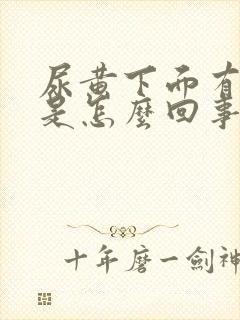 尿黄下而有
是怎麽回事
十年磨一劍神